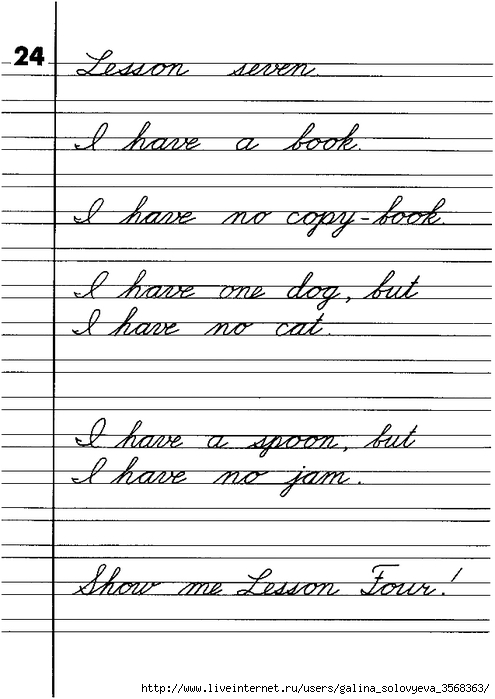 24
Lesson seven.
I have a book.
I have no copy-book.
I have one dog, but
I have no cat.
I have a spoon, but
I have no jam.
Show me Lesson Four!
http://www.liveinternet.ru/users/galina_solovyeva_3568363/